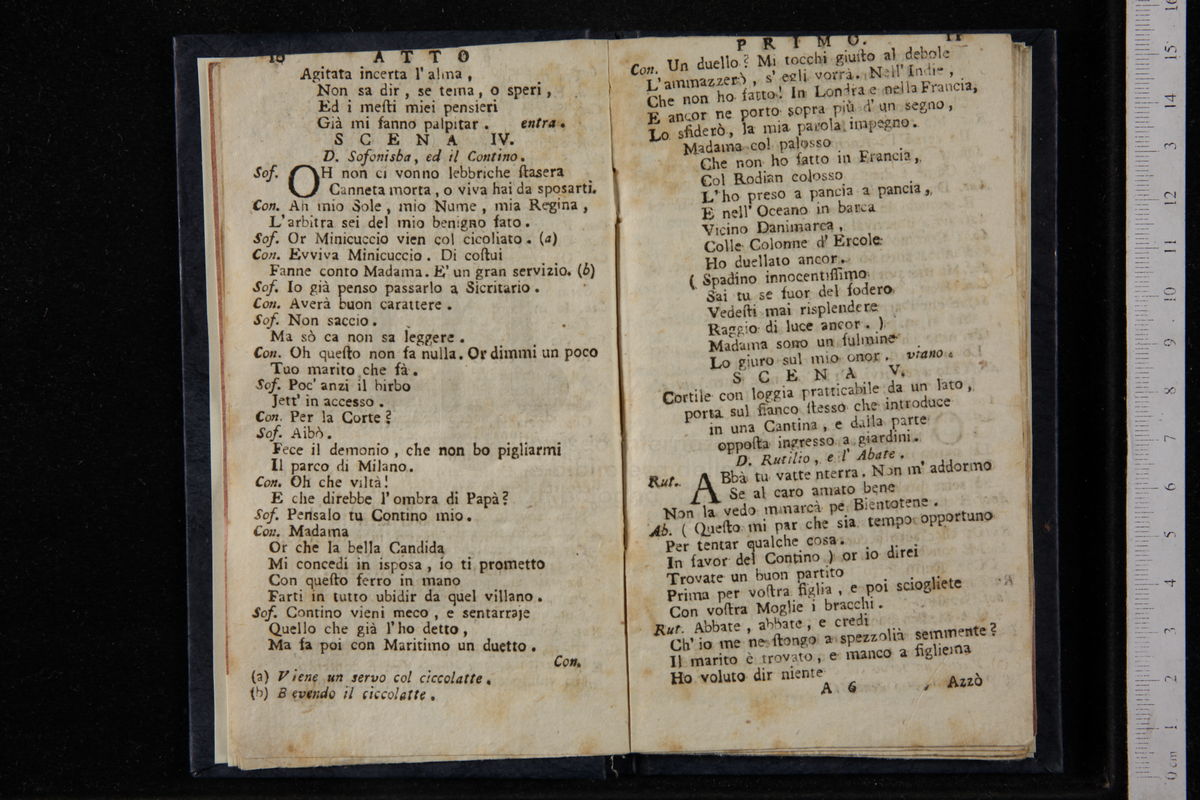 10 A T T O
Agitata incerta l'alma,
Non sa dir, se tema, o speri,
Ed i meſti miei pensieri
Già mi fanno palpitar. entra.
S C E N A IV.
D. Sofonisba, ed il Contino.
Sof. OH non ci vonno lebbriche ſtasera
Canneta morta, o viva hai da sposarti.
Con. Ah mio Sole, mio Nume, mia Regina,
L'arbitra sei del mio benigno fato.
Sof. Or Minicuccio vien col cicoliato. (a)
Con. Evviva Minicuccio. Di coſtui
Fanne conto Madama. E' un gran servizio. (b)
Sof. Io già penso passarlo a Sicritario.
Con. Averà buon carattere.
Sof. Non saccio.
Ma sò ca non sa leggere.
Con. Oh queſto non fa nulla. Or dimmi un poco
Tuo marito che fà.
Sof. Poc'anzi il birbo
Jett' in accesso.
Con. Per la Corte?
Sof. Aibò.
Fece il demonio, che non bo pigliarmi
Il parco di Milano.
Con. Oh che viltà!
E che direbbe l'ombra di Papà?
Sof. Pensalo tu Contino mio.
Con. Madama
Or che la bella Candida
Mi concedi in isposa, io ti prometto
Con queſto ferro in mano
Farti in tutto ubidir da quel villano.
Sof. Contino vieni meco, e sentarraje
Quello che già l'ho detto,
Ma fa poi con Maritimo un duetto.
Con.
(a) Viene un servo col ciccolatte.
(b) Bevendo il ciccolatte.
P R I M O. 11
Con. Un duello? Mi tocchi giuſto al debole
L'ammazzerò, s'egli vorrà. Nell'Indie,
Che non ho fatto! In Londra e nella Francia,
E ancor ne porto sopra più d'un segno,
Lo sfiderò, la mia parola impegno.
Madama col palosso
Che non ho fatto in Francia,
Col Rodian colosso
L'ho preso a pancia a pancia,
E nell'Oceano in barca
Vicino Danimarca,
Colle Colonne d'Ercole
Ho duellato ancor.
( Spadino innocentiſſimo
Sai tu se fuor del fodero
Vedeſti mai risplendere
Raggio di luce ancor. )
Madama sono un fulmine
Lo giuro sul mio onor. viano.
S C E N A V.
Cortile con loggia pratticabile da un lato,
porta sul fianco ſtesso che introduce
in una Cantina, e dalla parte
oppoſta ingresso a giardini.
D. Rutilio, e l'Abate.
Rut. ABbà tu vatte nterra. Non m'addormo
Se al caro amato bene
Non la vedo mmarcà pe Bientotene.
Ab. ( Queſto mi par che sia tempo opportuno
Per tentar qualche cosa.
In favor del Contino ) or io direi
Trovate un buon partito
Prima per voſtra figlia, e poi sciogliete
Con voſtra Moglie i bracchi.
Rut. Abbate, abbate, e credi
Ch'io me ne ſtongo a spezzolià semmente?
Il marito è trovato, e manco a figliema
Ho voluto dir niente
A 6 Azzò